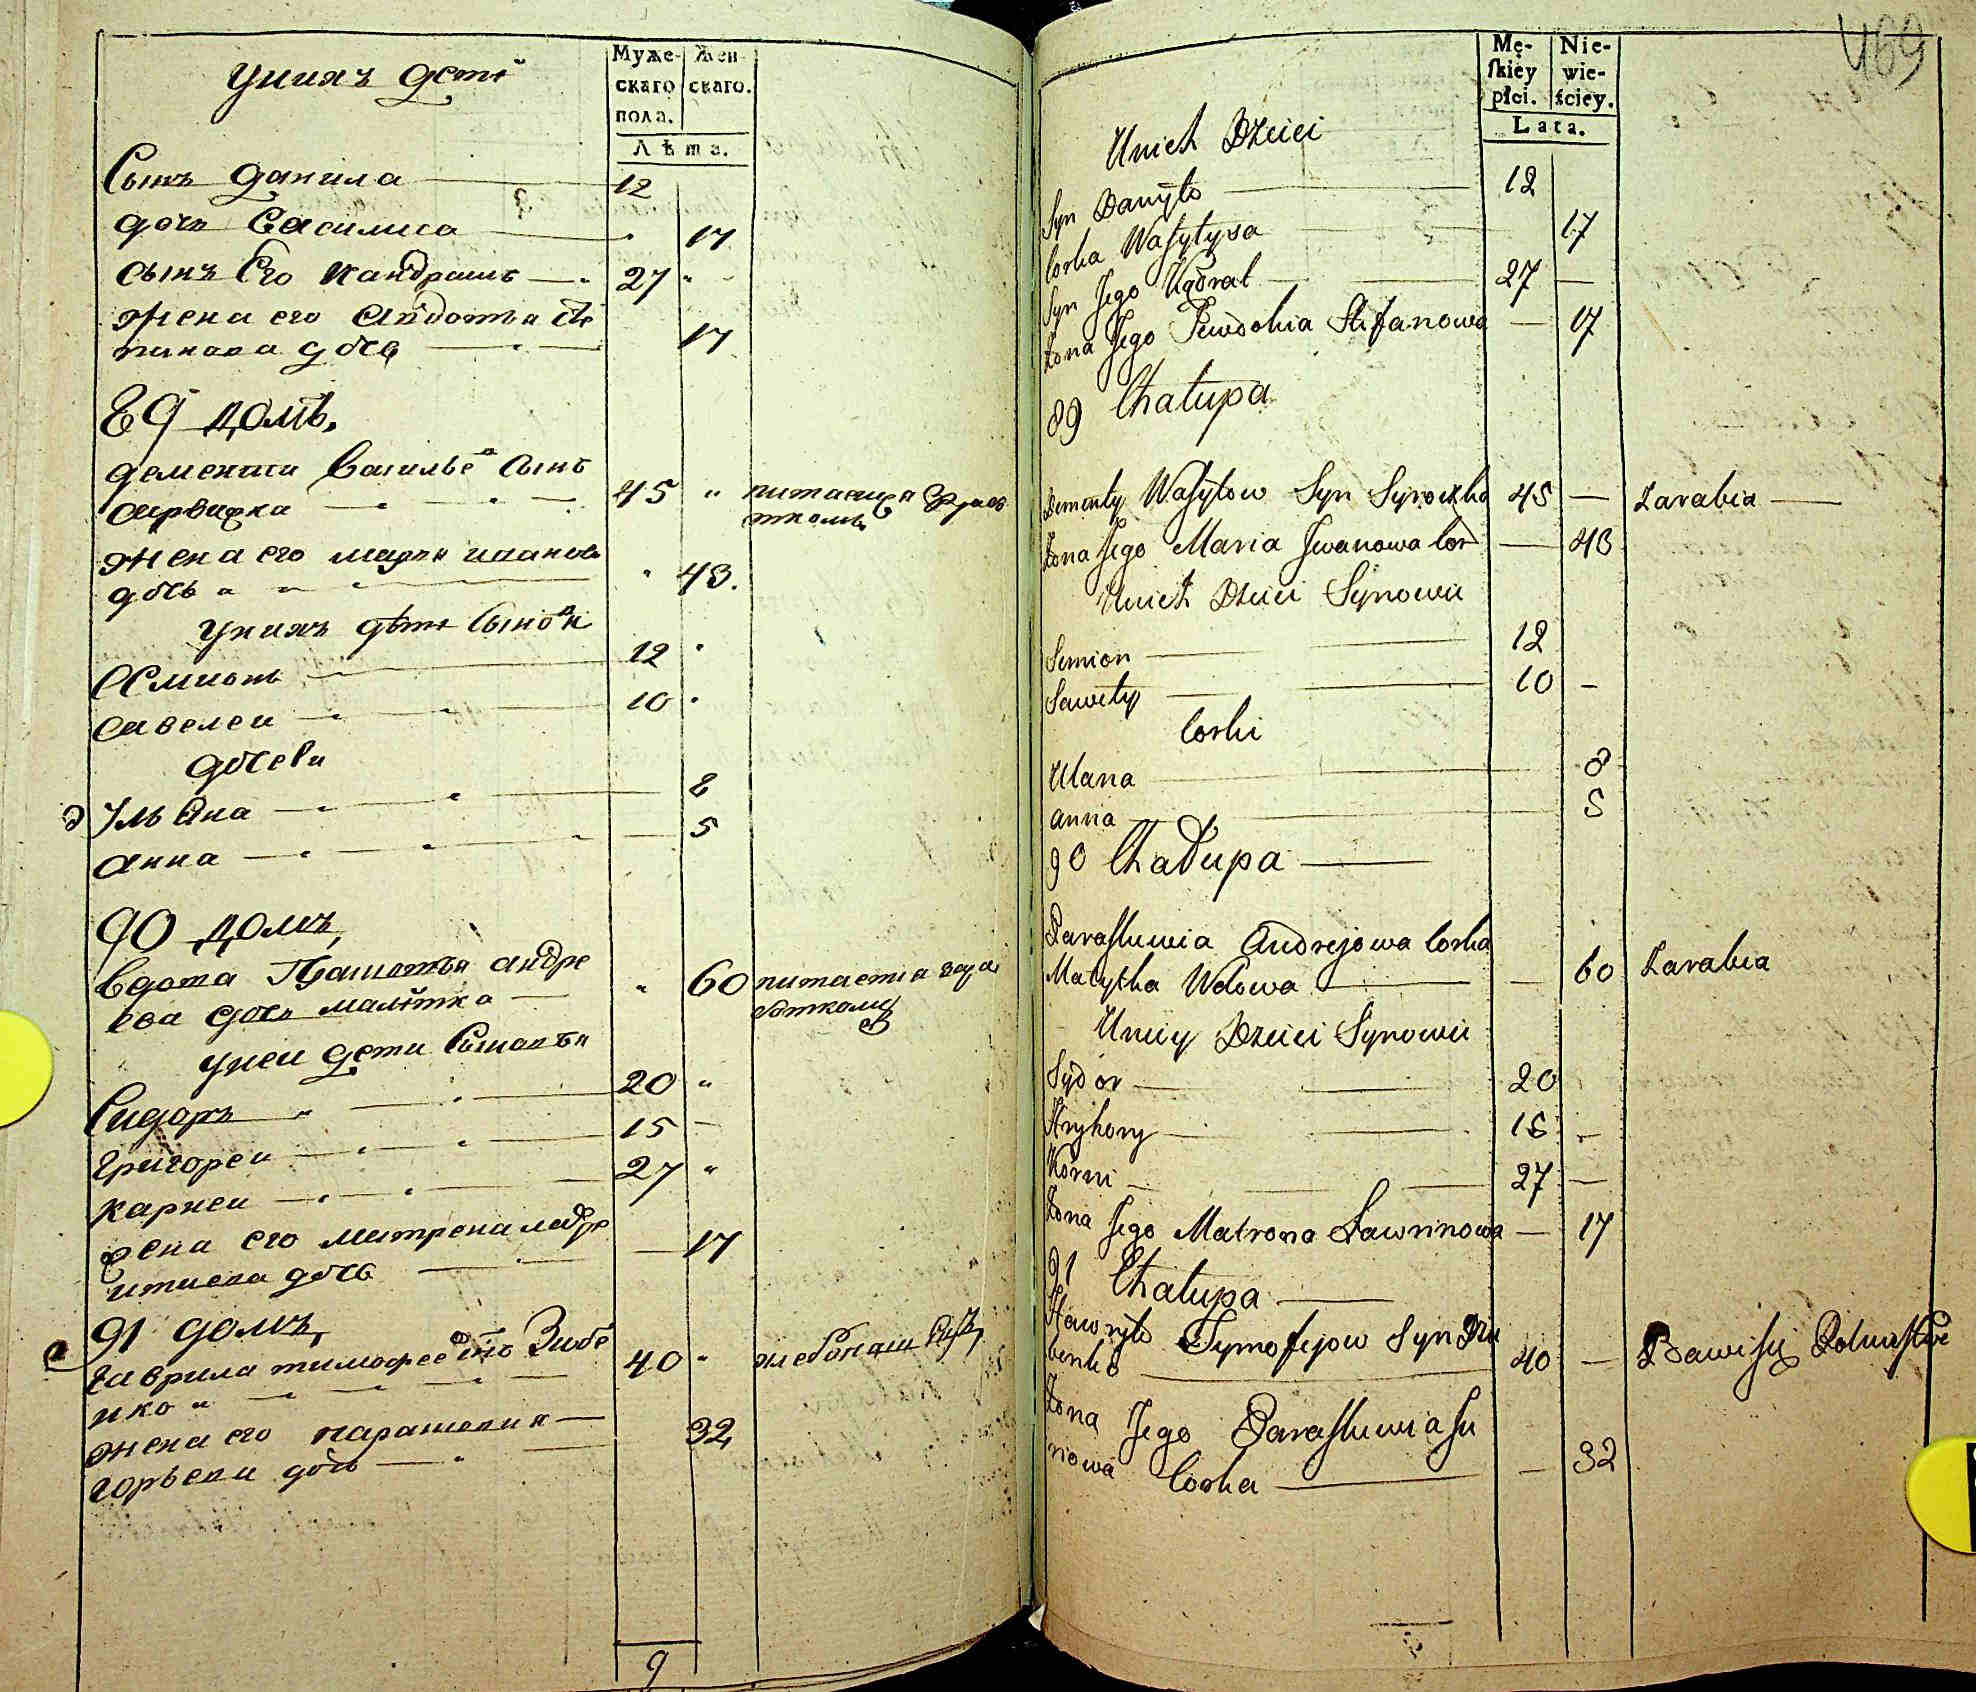 Муже-
скаго
пола.
Жен-
скаго.
Лѣта.
унихъ дети
Сынъ данила 12
дочь Василиса 17
сынъ Его Кандратъ 27
Жена его Авдотья Сте
панова дочь 17
89 домъ,
дементи Василье въ Сынъ
45 питаеица
жена его марья иванов
дочь 43.
унихъ дѣти Сынов
Семионъ 12
Савелеи 10
дочери
Ульяна 8
Анна 5
90 домъ,
вдова андре
ева дочь малѣтка 60 питаетца
унеи дети Сыновья
Сидоръ 20
Григореи 15
Карнеи 27
жена его матрена лавре
нтиева дочь 17
91 домъ,
Гаврила тимофее
нко 40
жена его парасковия
дочь 32
9
469
Mę-
ſkiey
płci.
Nie-
wie-
ściey.
Lata.
Unich Dzieci
Syn Danyło 12
Corka Wasylysa 17
Syn Jego Kądrat 27
Żona Jego Jewdokia Stefanowa 17
89 Chałupa
Dementy Wasylow Syn 45 Zarabia
Żona Jego Maria Jwanowa Cor 43
Unich Dzieci Synowie
Semion 12
Sawety 10
Corki
Ulana 8
anna 5
90 Chałupa
Paraskiewia Andrejowa Corka
Matytka Wdowa 60 Zarabia
Uniey Dzieci Synowie
Sydor 20
Hryhory 15
Korni 27
Żona Jego Matrona Ławrinowa 17
91 Chałupa
Hawryło Tymofejow Syn Dzu
benko 40 Bawi się Rolnastwe
Żona Jego Paraskiewia
nowa Corka 32